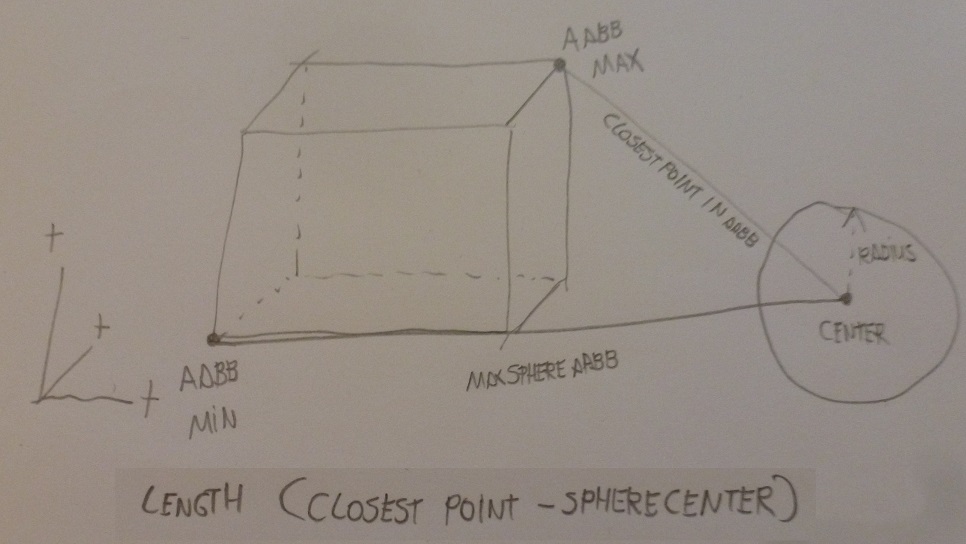 AABB
MAX
CLOSEST POINT IN AABB
+
+
+
RADIUS
CENTER
AABB
MIN
MAXSPHERE AABB
LENGTH (CLOSEST POINT - SPHERECENTER)